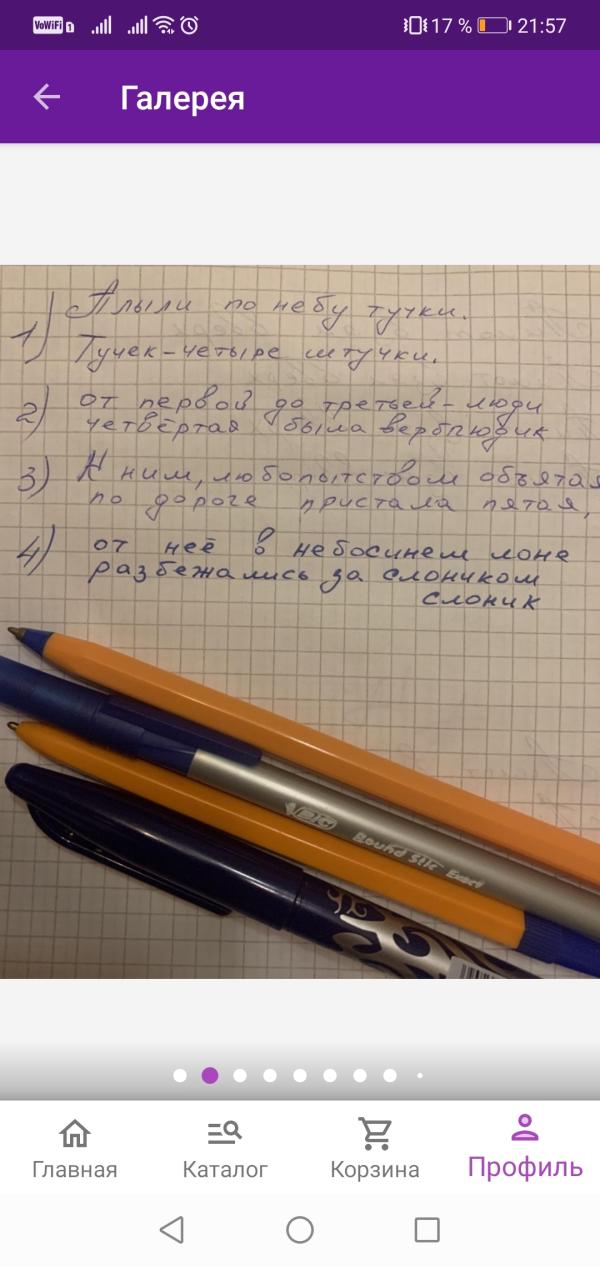 VoWiFi 1 17 % 21:57
Галерея
1) Плыли по небу тучки.
Тучек-четыре штучки.
2) от первой до третьей-люди
четвёртая была верблюдик
3) К ним, любопытством объятая
по дороге пристала пятая,
4) от неё в небосинем лоне
разбежались за слоником
слоник
BIC Round Stic Exact
Главная Каталог Корзина Профиль